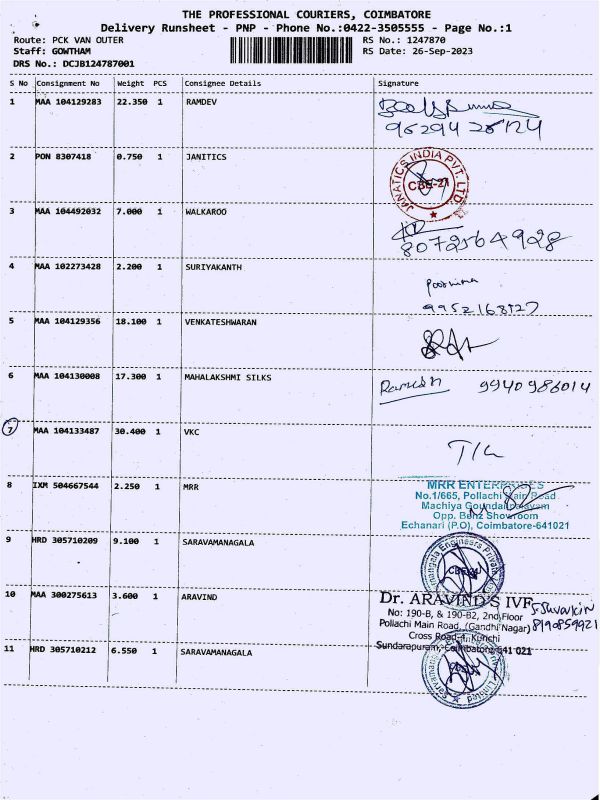 THE PROFESSIONAL COURIERS, COIMBATORE
Delivery Runsheet - PNP - Phone No.:0422-3505555 - Page No.:1
Route: PCK VAN OUTER RS No.: 1247870
Staff: GOWTHAM RS Date: 26-Sep-2023
DRS No.: DCJB124787001
S No Consignment No Weight PCS Consignee Details Signature
1 MAA 104129283 22.350 1 RAMDEV
2 PON 8307418 0.750 1 JANITICS
JANATICS INDIA PVT. LTD.
CBE-21
3 MAA 104492032 7.000 1 WALKAROO
8072564928
4 MAA 102273428 2.200 1 SURIYAKANTH
Poornima
9952168127
5 MAA 104129356 18.100 1 VENKATESHWARAN
6 MAA 104130008 17.300 1 MAHALAKSHMI SILKS Ramesh 9940986014
7 MAA 104133487 30.400 1 VKC
8 IXM 504667544 2.250 1 MRR
MRR ENTERPRISES
No.1/665, Pollachi Main Road
Machiya Goundanpalayam
Opp. Benz Showroom
Echanari (P.O), Coimbatore-641021
9 HRD 305710209 9.100 1 SARAVAMANAGALA
10 MAA 300275613 3.600 1 ARAVIND
Dr. ARAVIND'S IVF
No: 190-B, & 190-B2, 2nd Floor
Pollachi Main Road, (Gandhi Nagar)
Cross Road-4, Kurichi
Sundarapuram, Coimbatore-641 021
11 HRD 305710212 6.550 1 SARAVAMANAGALA